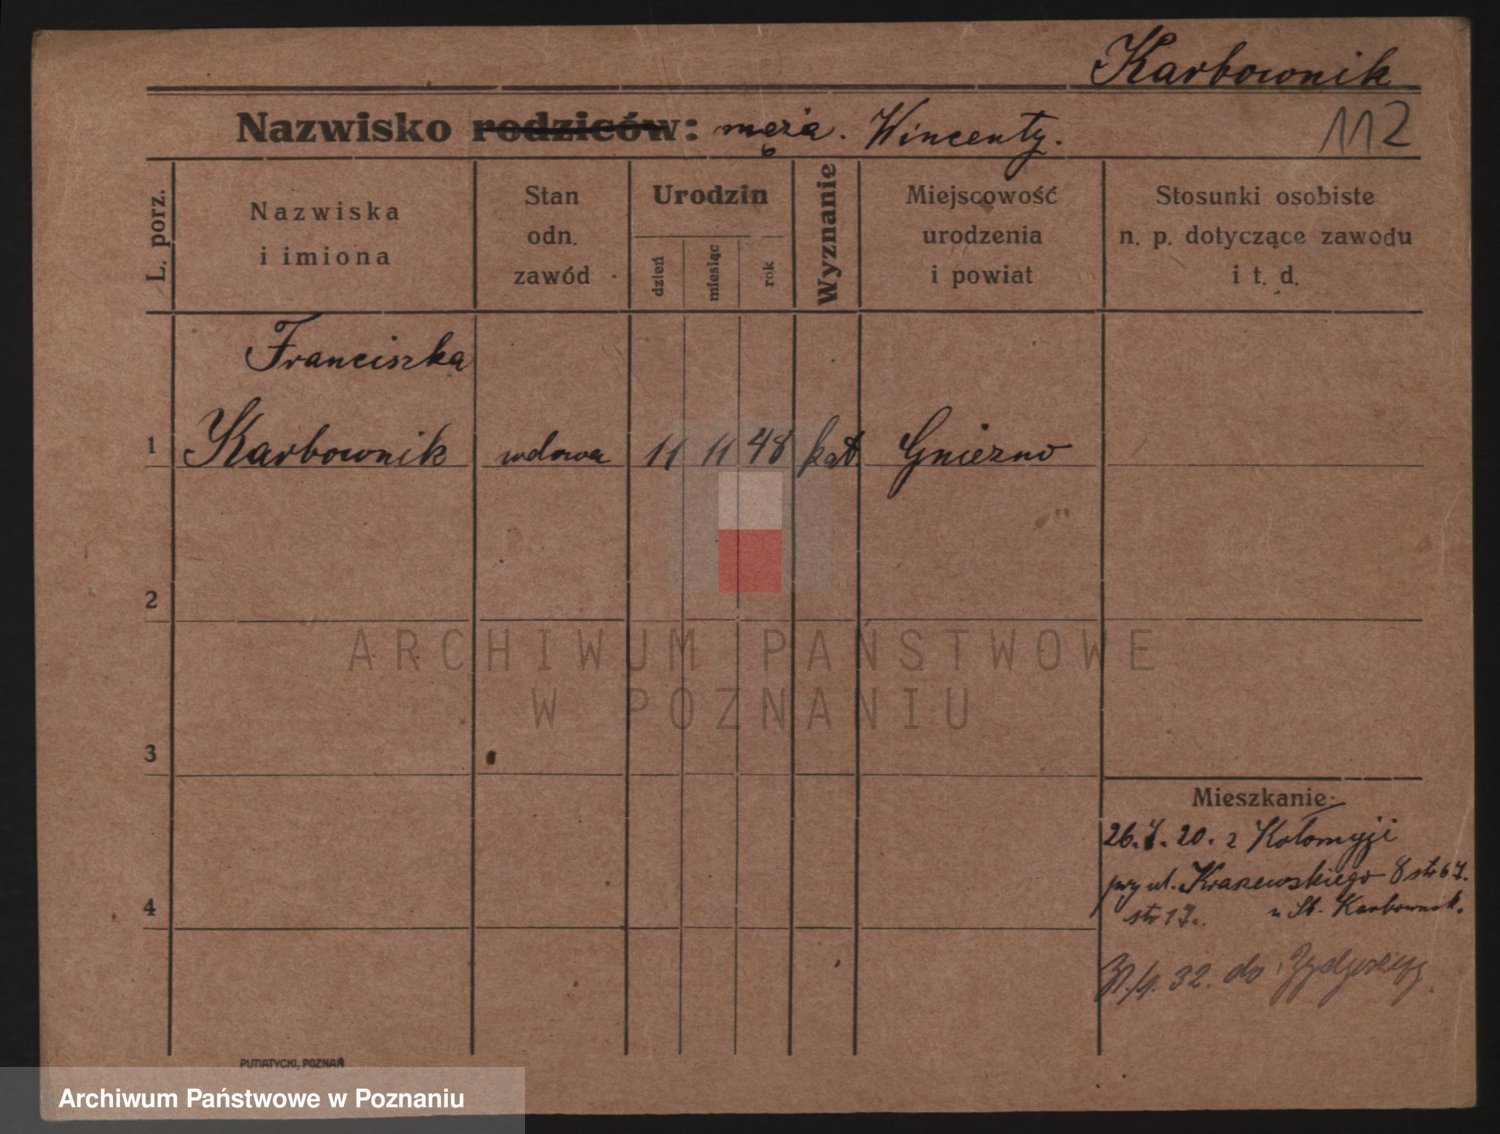 Karbownik
Nazwisko rodziców: męża. Wincenty.
112
L. porz.
Nazwiska
i imiona
Stan
odn.
zawód
Urodzin
dzień
miesiąc
rok
Wyznanie
Miejscowość
urodzenia
i powiat
Stosunki osobiste
n. p. dotyczące zawodu
i t. d.
Franciszka
1 Karbownik wdowa 11 11 48 kat. Gniezno
2
ARCHIWUM PAŃSTWOWE
W POZNANIU
3
Mieszkanie:
26. 7. 20. z Kołomyji
przy ul. Kraszewskiego 8 str 67.
str 17. u St. Karbownik.
4
32. do Bydgoszczy
PUTIATYCKI, POZNAŃ
Archiwum Państwowe w Poznaniu